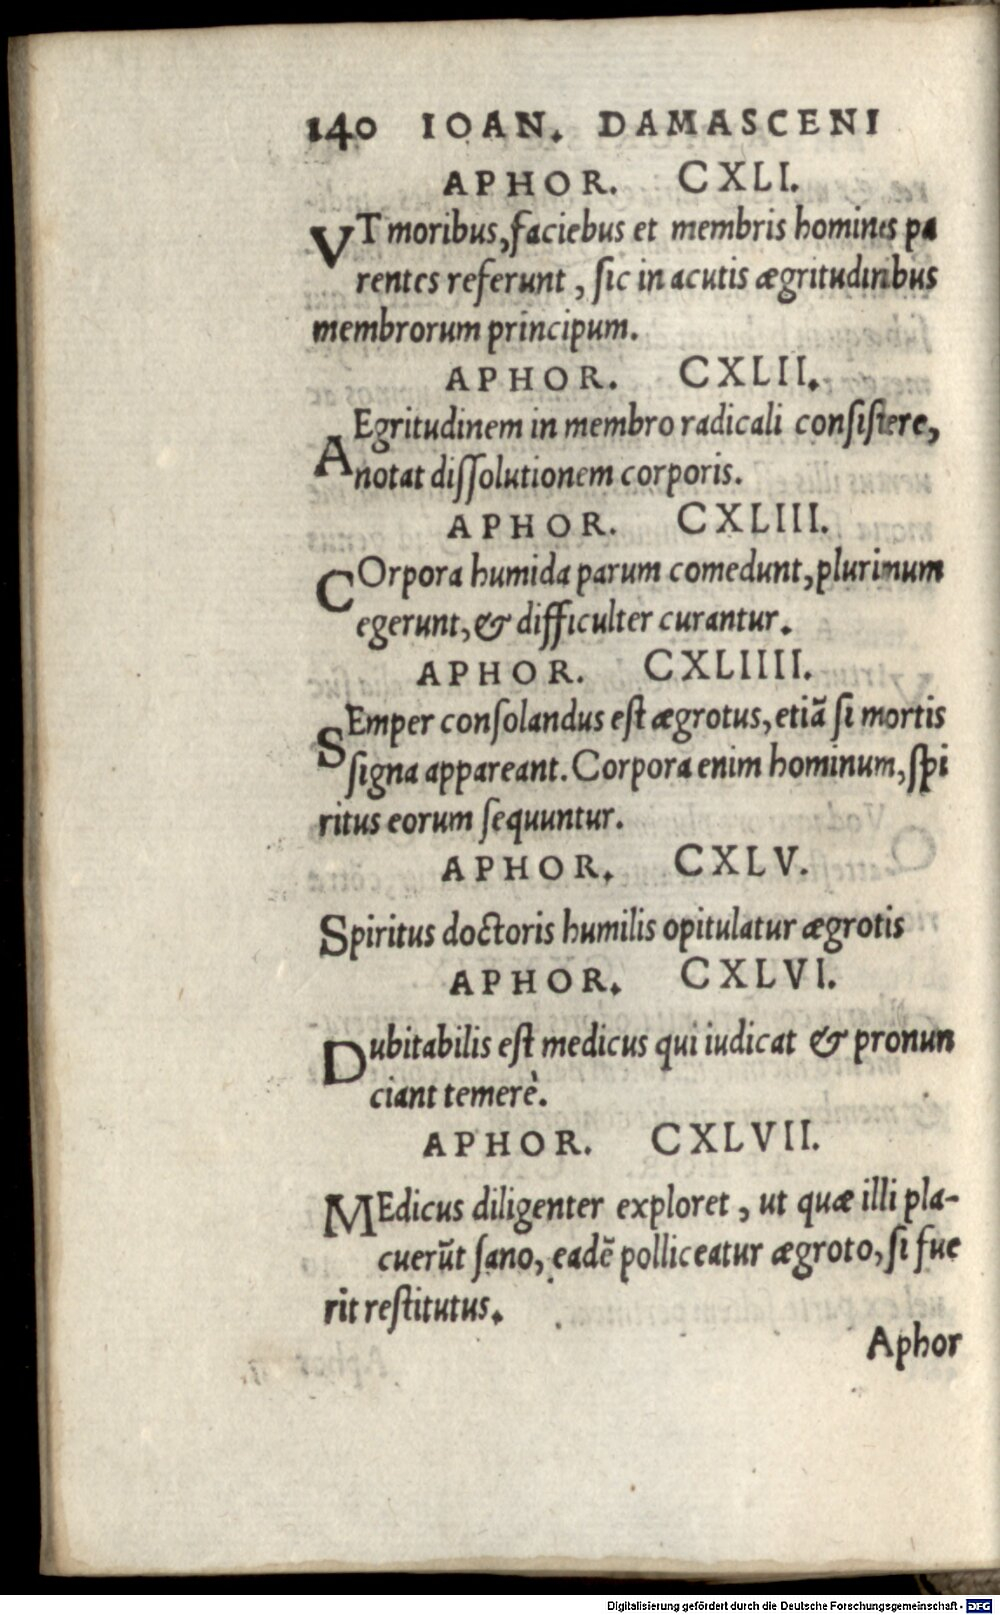 140 IOAN. DAMASCENI
APHOR. CXLI.
VT moribus, faciebus et membris homines pa
rentes referunt, sic in acutis ægritudinibus
membrorum principum.
APHOR. CXLII.
AEgritudinem in membro radicali consistere,
notat dissolutionem corporis.
APHOR. CXLIII.
COrpora humida parum comedunt, plurimum
egerunt, & difficulter curantur.
APHOR. CXLIIII.
SEmper consolandus est ægrotus, etiã si mortis
signa appareant. Corpora enim hominum, spi
ritus eorum sequuntur.
APHOR. CXLV.
Spiritus doctoris humilis opitulatur ægrotis
APHOR. CXLVI.
Dubitabilis est medicus qui iudicat & pronun
ciant temerè.
APHOR. CXLVII.
MEdicus diligenter exploret, ut quæ illi pla-
cuerũt sano, eadẽ polliceatur ægroto, si fue
rit restitutus.
Aphor
Digitalisierung gefördert durch die Deutsche Forschungsgemeinschaft - DFG